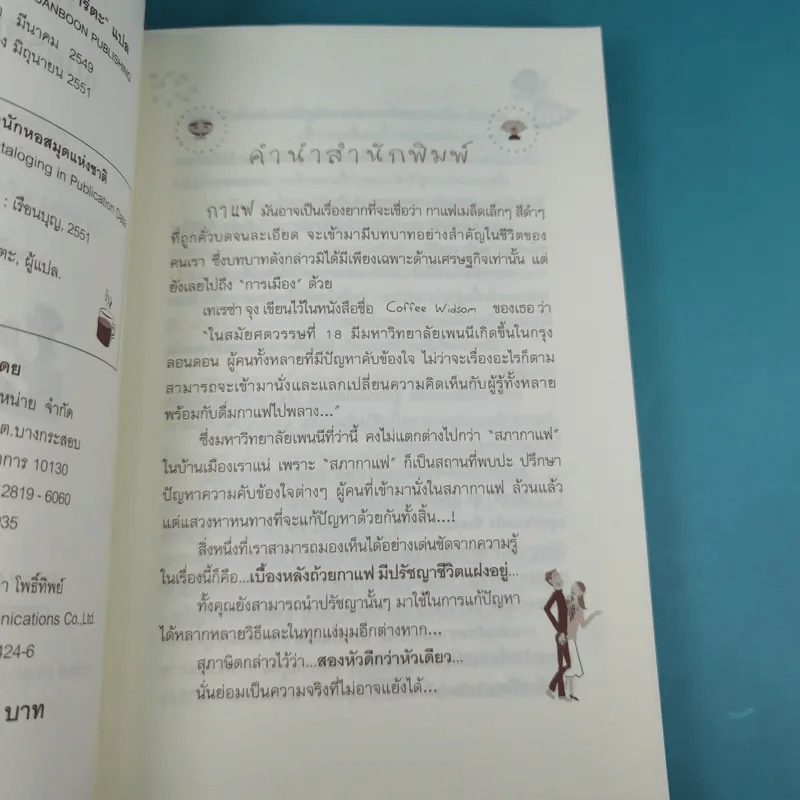 แปล
ANBOON PUBLISHING
มีนาคม 2549
มิถุนายน 2551
นักหอสมุดแห่งชาติ
taloging in Publication Data
: เรือนบุญ, 2551
ตะ, ผู้แปล.
ดย
หน่าย จำกัด
ต.บางกระสอบ
าการ 10130
2819 - 6060
935
า โพธิ์ทิพย์
unications Co.,Ltd.
424-6
บาท
คำนำสำนักพิมพ์
กาแฟ มันอาจเป็นเรื่องยากที่จะเชื่อว่า กาแฟเมล็ดเล็กๆ สีดำๆ
ที่ถูกคั่วบดจนละเอียด จะเข้ามามีบทบาทอย่างสำคัญในชีวิตของ
คนเรา ซึ่งบทบาทดังกล่าวมิได้มีเพียงเฉพาะด้านเศรษฐกิจเท่านั้น แต่
ยังเลยไปถึง “การเมือง” ด้วย
เทเรซ่า จุง เขียนไว้ในหนังสือชื่อ Coffee Widsom ของเธอ ว่า
“ในสมัยศตวรรษที่ 18 มีมหาวิทยาลัยเพนนีเกิดขึ้นในกรุง
ลอนดอน ผู้คนทั้งหลายที่มีปัญหาคับข้องใจ ไม่ว่าจะเรื่องอะไรก็ตาม
สามารถจะเข้ามานั่งและแลกเปลี่ยนความคิดเห็นกับผู้รู้ทั้งหลาย
พร้อมกับดื่มกาแฟไปพลาง...”
ซึ่งมหาวิทยาลัยเพนนีที่ว่านี้ คงไม่แตกต่างไปกว่า “สภากาแฟ”
ในบ้านเมืองเราแน่ เพราะ “สภากาแฟ” ก็เป็นสถานที่พบปะ ปรึกษา
ปัญหาความคับข้องใจต่างๆ ผู้คนที่เข้ามานั่งในสภากาแฟ ล้วนแล้ว
แต่แสวงหาหนทางที่จะแก้ปัญหาด้วยกันทั้งสิ้น...!
สิ่งหนึ่งที่เราสามารถมองเห็นได้อย่างเด่นชัดจากความรู้
ในเรื่องนี้ก็คือ...เบื้องหลังถ้วยกาแฟ มีปรัชญาชีวิตแฝงอยู่...
ทั้งคุณยังสามารถนำปรัชญานั้นๆ มาใช้ในการแก้ปัญหา
ได้หลากหลายวิธีและในทุกแง่มุมอีกต่างหาก...
สุภาษิตกล่าวไว้ว่า...สองหัวดีกว่าหัวเดียว...
นั่นย่อมเป็นความจริงที่ไม่อาจแย้งได้...